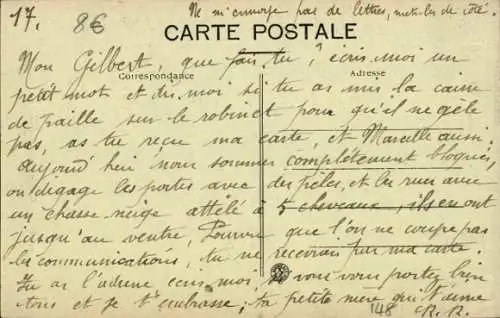 17.
86
Ne m'envoye pas de lettres, mets-les de côté
CARTE POSTALE
Mon Gilbert, que fais-tu, écris moi un
Correspondance
Adresse
petit mot et dis moi si tu as mis la caisse
de paille sur le robinet pour qu'il ne gèle
pas, as tu reçu ma carte, et Marcelle aussi;
aujourd'hui nous sommes complètement bloqués,
on dégage les portes avec des pelles, et les rues avec
un chasse neige attelé à 5 chevaux, ils en ont
jusqu'au ventre, Pourvu que l'on ne coupe pas
les communications, tu ne recevrais pas ma carte.
Tu as l'adresse écris moi, si vous vous portez bien
tous et je t'embrasse, ta petite mère qui t'aime
148
R.